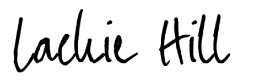 Lachie Hill